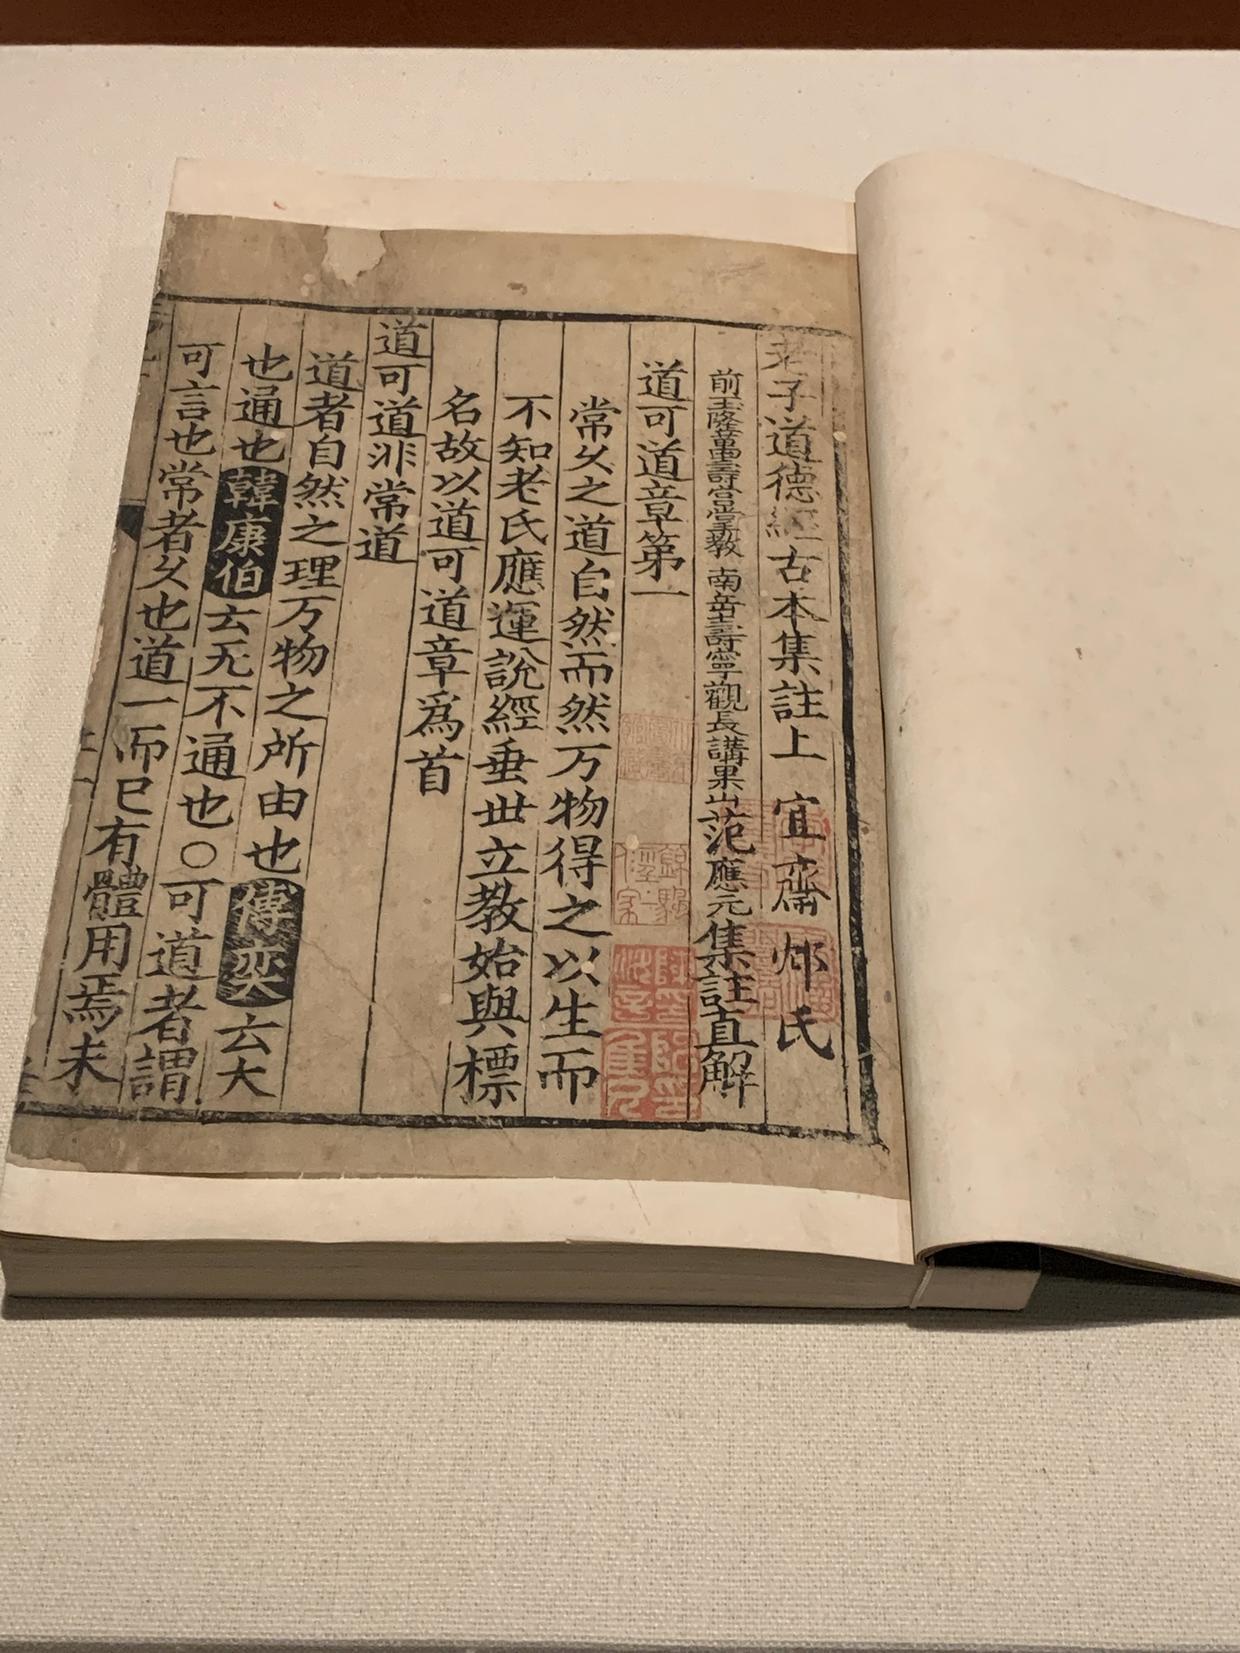 老子道德經古本集註上 宜齋邾氏
前玉隆萬壽宮掌教 南岳壽寧觀長講果山范應元集註直解
道可道章第一
常久之道自然而然万物得之以生而
不知老氏應運說經垂世立教始與標
名故以道可道章爲首
道可道非常道
道者自然之理万物之所由也傅奕云大
也通也韓康伯云无不通也○可道者謂
可言也常者久也道一而已有體用焉未